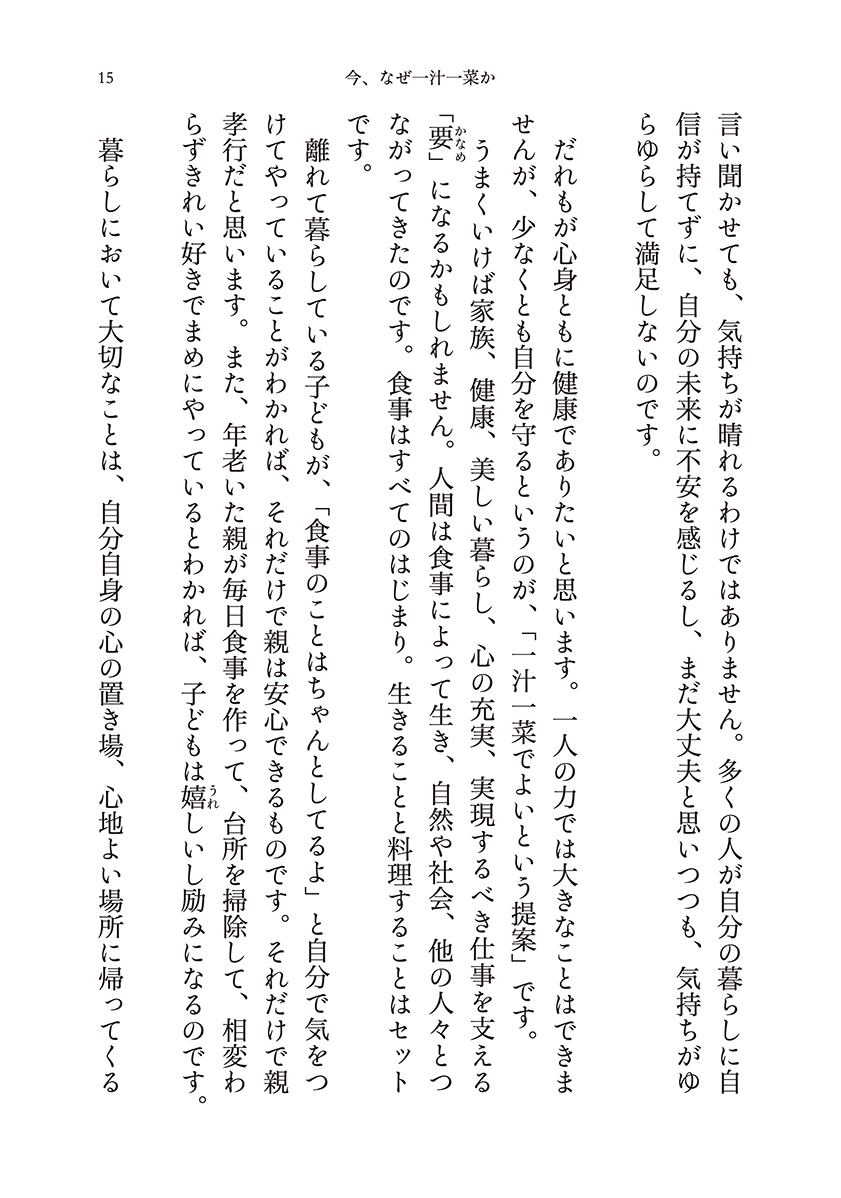 15
今、なぜ一汁一菜か
言い聞かせても、気持ちが晴れるわけではありません。多くの人が自分の暮らしに自
信が持てずに、自分の未来に不安を感じるし、まだ大丈夫と思いつつも、気持ちがゆ
らゆらして満足しないのです。
だれもが心身ともに健康でありたいと思います。一人の力では大きなことはできま
せんが、少なくとも自分を守るというのが、「一汁一菜でよいという提案」です。
うまくいけば家族、健康、美しい暮らし、心の充実、実現するべき仕事を支える
「要」になるかもしれません。人間は食事によって生き、自然や社会、他の人々とつ
かなめ
ながってきたのです。食事はすべてのはじまり。生きることと料理することはセット
です。
離れて暮らしている子どもが、「食事のことはちゃんとしてるよ」と自分で気をつ
けてやっていることがわかれば、それだけで親は安心できるものです。それだけで親
孝行だと思います。また、年老いた親が毎日食事を作って、台所を掃除して、相変わ
らずきれい好きでまめにやっているとわかれば、子どもは嬉しいし励みになるのです。
うれ
暮らしにおいて大切なことは、自分自身の心の置き場、心地よい場所に帰ってくる